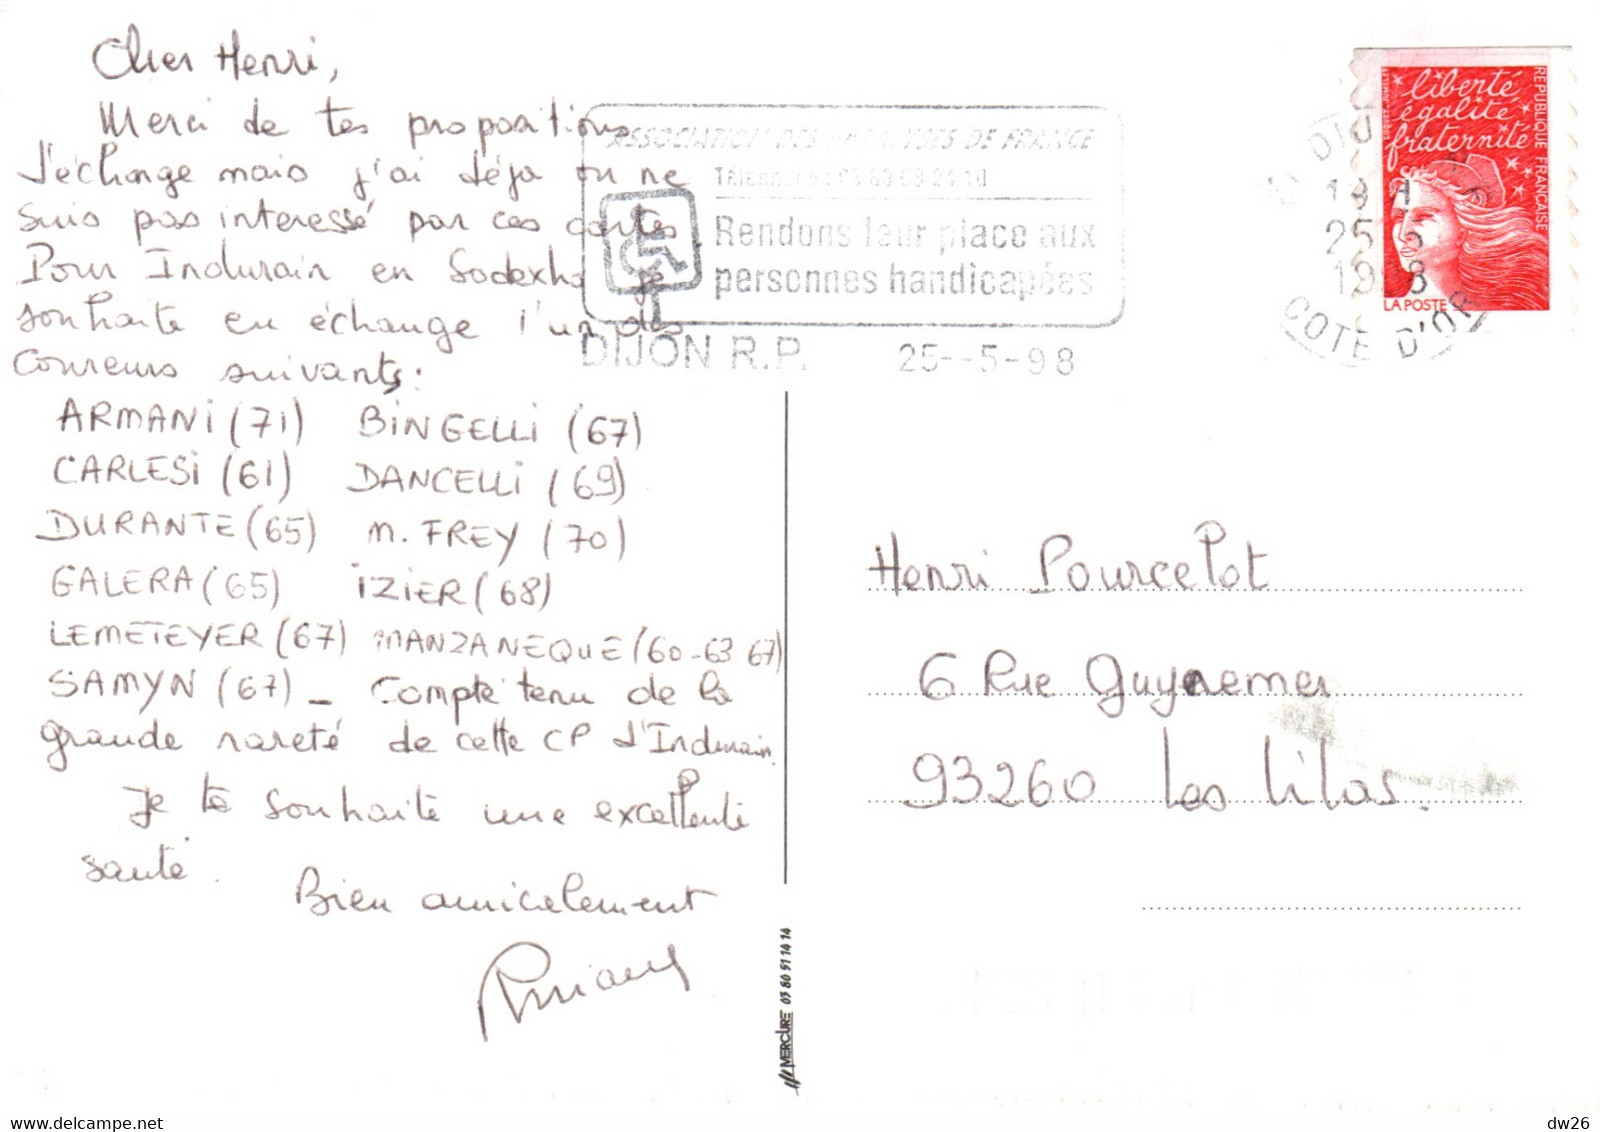 Cher Henri,
Merci de tes propositions
d'échange mais j'ai déja ou ne
suis pas interessé par ces cartes.
Pour Indurain en Sodexho je
souhaite en échange l'un des
coureurs suivants:
ARMANI (71) BINGELLI (67)
CARLESI (61) DANCELLI (69)
DURANTE (65) M. FREY (70)
GALERA (65) IZIER (68)
LEMETEYER (67) MANZANEQUE (60-63-67)
SAMYN (67) - Compte tenu de la
grande rareté de cette CP d'Indurain.
Je te souhaite une excellente
santé.
Bien amicalement
ASSOCIATION DES PARALYSES DE FRANCE
Rendons leur place aux
personnes handicapées
DIJON R.P. 25--5-98
liberté
égalité
fraternité
REPUBLIQUE FRANÇAISE
LA POSTE
COTE D'OR
Henri Pourcelot
6 Rue Guynemer
93260 Les Lilas.
MERCURE 03 80 91 14 14
dw26